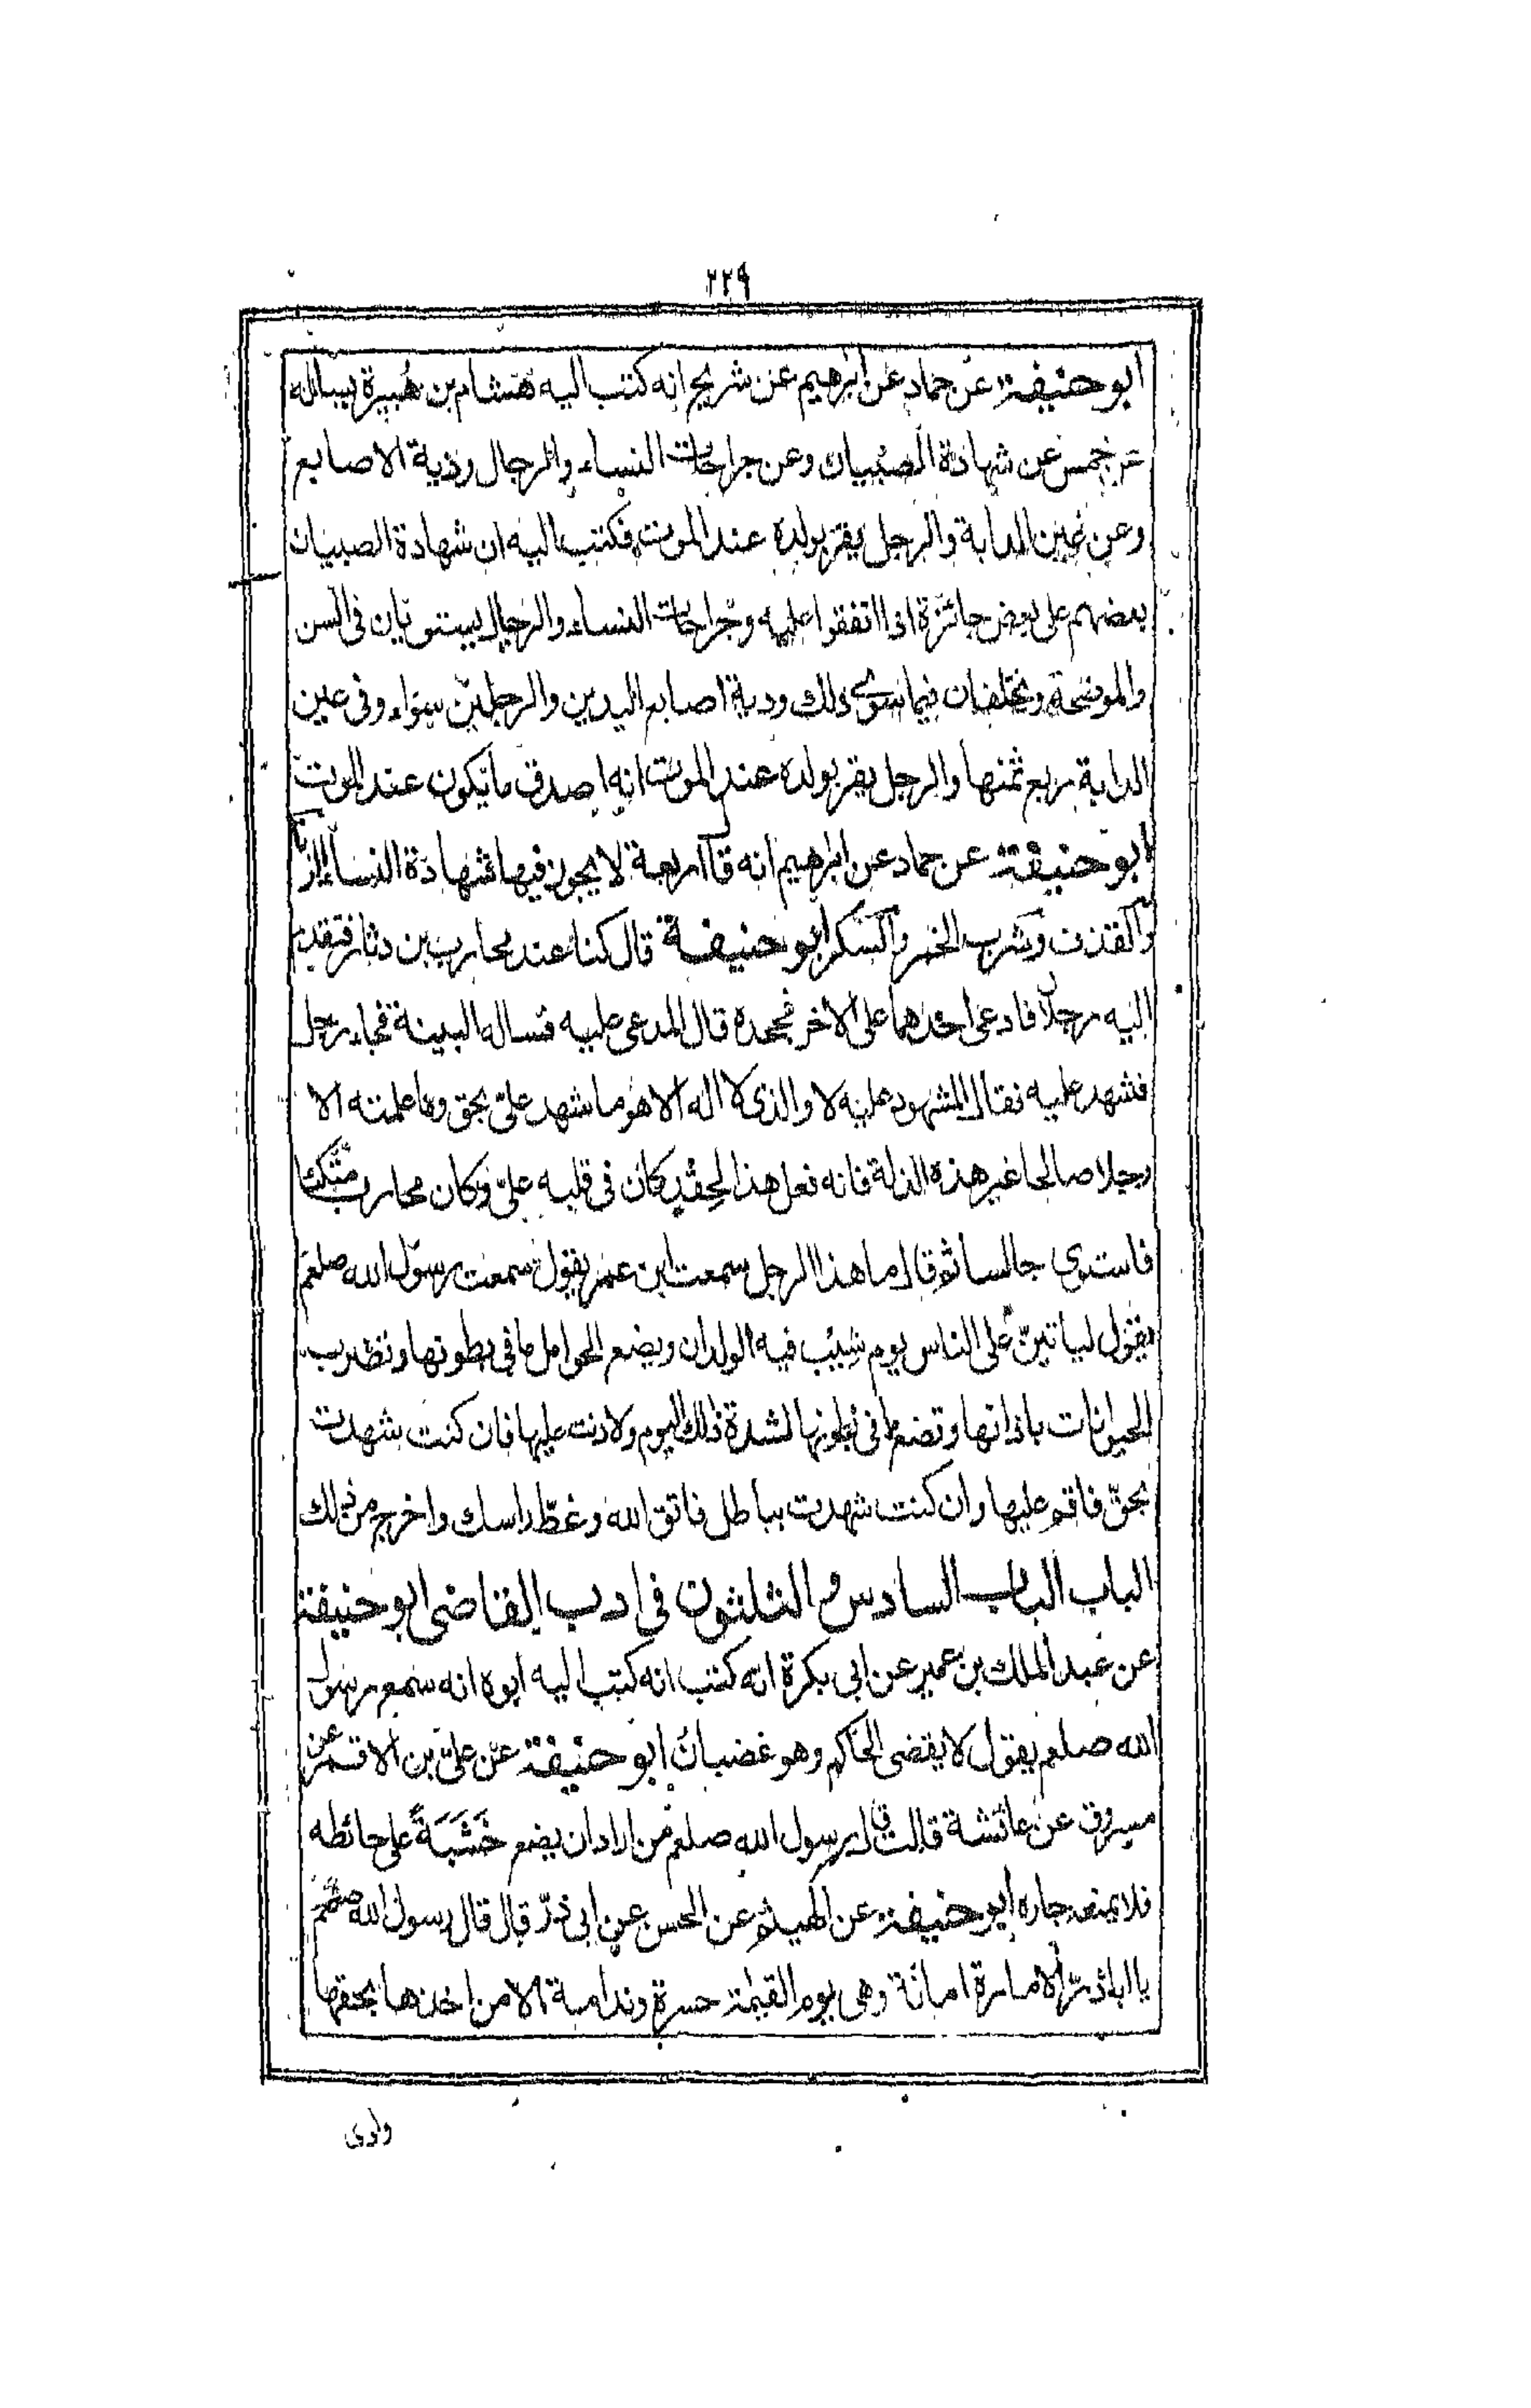 ٢٢٩
ابو حنيفة عن حماد عن ابرهيم عن شريح انه كتب اليه هشام بن هبيرة يساله
عن خمس عن شهادة الصبيان وعن جراحات النساء والرجال ودية الاصابع
وعن عين الدابة والرجل يقر بولده عند الموت فكتب اليه ان شهادة الصبيان
بعضهم على بعض جائزة اذا اتفقوا عليه وجراحات النساء والرجال يستويان فى السن
والموضحة ويختلفان فيما سوى ذلك ودية اصابع اليدين والرجلين سواء وفى عين
الدابة ربع ثمنها والرجل يقر بولده عند الموت انه اصدق ما يكون عند الموت
ابو حنيفة عن حماد عن ابرهيم انه قال اربعة لا يجوز فيها شهادة النساء الزنا
والقذف وشرب الخمر والسكر ابو حنيفة قال كنا عند محارب بن دثار فتقدم
اليه رجلان فادعى احدهما على الاخر فجحده قال المدعى عليه فساله البينة فجاء رجل
فشهد عليه فقال المشهود عليه لا والذى لا اله الا هو ما شهد علىّ بحق وما علمته الا
رجلا صالحا غير هذه الزلة فانه فعل هذا لحقد كان فى قلبه علىّ وكان محارب متكئا
فاستوى جالسا ثم قال يا هذا الرجل سمعت ابن عمر يقول سمعت رسول الله صلعم
يقول لياتينّ على الناس يوم شيب فيه الولدان ويضع الحوامل ما فى بطونها وتضرب
الحيوانات باذانها وتضع ما فى بطونها لشدة ذلك اليوم ولا ذنب عليها فان كنت شهدت
بحقّ فاقم عليها وان كنت شهدت بباطل فاتق الله وغطّ راسك واخرج من ذلك
الباب الباب السادس و الثلثون فى ادب القاضى ابو حنيفة
عن عبد الملك بن عمير عن ابى بكرة انه كتب انه كتب اليه ابوه انه سمع رسول
الله صلعم يقول لا يقضى الحاكم وهو غضبان ابو حنيفة عن علىّ بن الاقمر عن
مسروق عن عائشة قالت قال رسول الله صلعم من اراد ان يضع خَشَبَةً على حائطه
فلا يمنعه جاره ابو حنيفة عن الهيثم عن الحسن عن ابى ذرّ قال قال رسول الله صلعم
يا اباذرّ الامارة امانة وهى يوم القيمة حسرة وندامة الا من اخذها بحقها
وادى